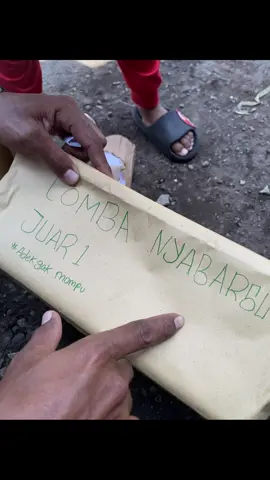 LOMBA NYABARBU
JUAR 1
*Adekgak mampu